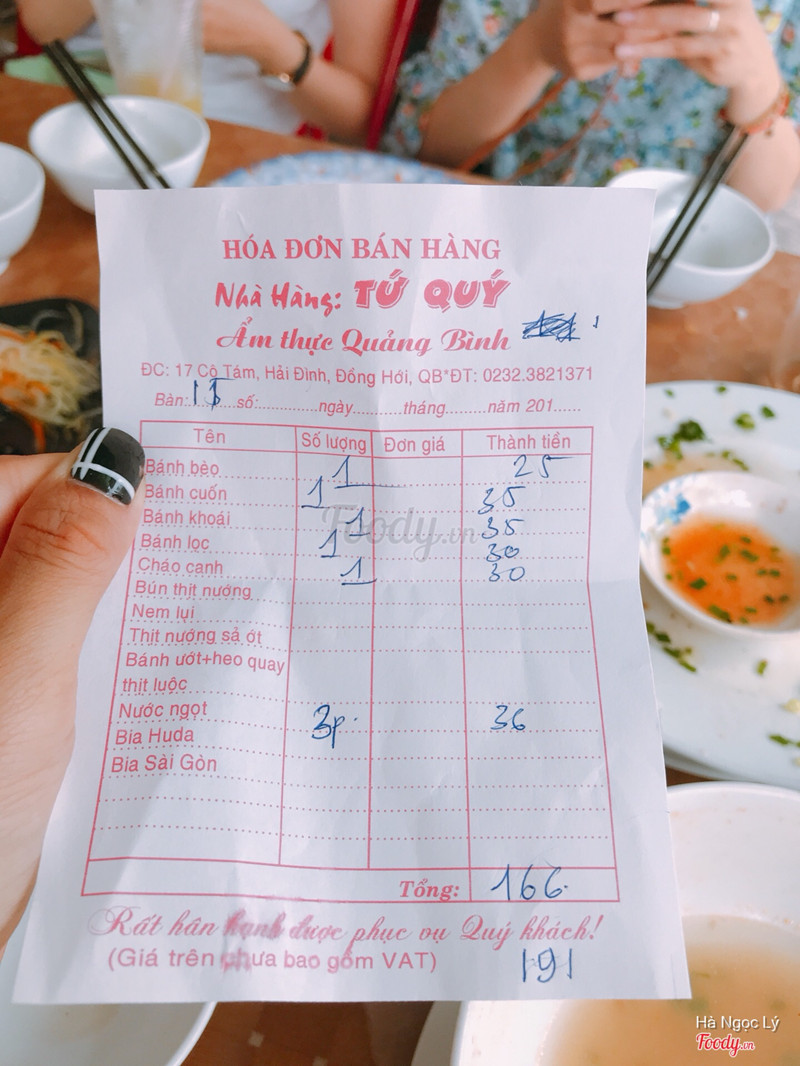 HÓA ĐƠN BÁN HÀNG
Nhà Hàng: TỨ QUÝ
Ẩm thực Quảng Bình
ĐC: 17 Cô Tám, Hải Đình, Đồng Hới, QB*ĐT: 0232.3821371
Bàn:..15....số:..............ngày...........tháng.........năm 201......
Tên Số lượng Đơn giá Thành tiền
Bánh bèo 1 25
Bánh cuốn 1 35
Bánh khoái 1 35
Bánh lọc 1 30
Cháo canh 1 30
Bún thịt nướng
Nem lụi
Thịt nướng sả ớt
Bánh ướt+heo quay
thịt luộc
Nước ngọt 3p. 36
Bia Huda
Bia Sài Gòn
Tổng: 166.
Rất hân hạnh được phục vụ Quý khách!
(Giá trên chưa bao gồm VAT) 191
Foody.vn
Hà Ngọc Lý
Foody.vn